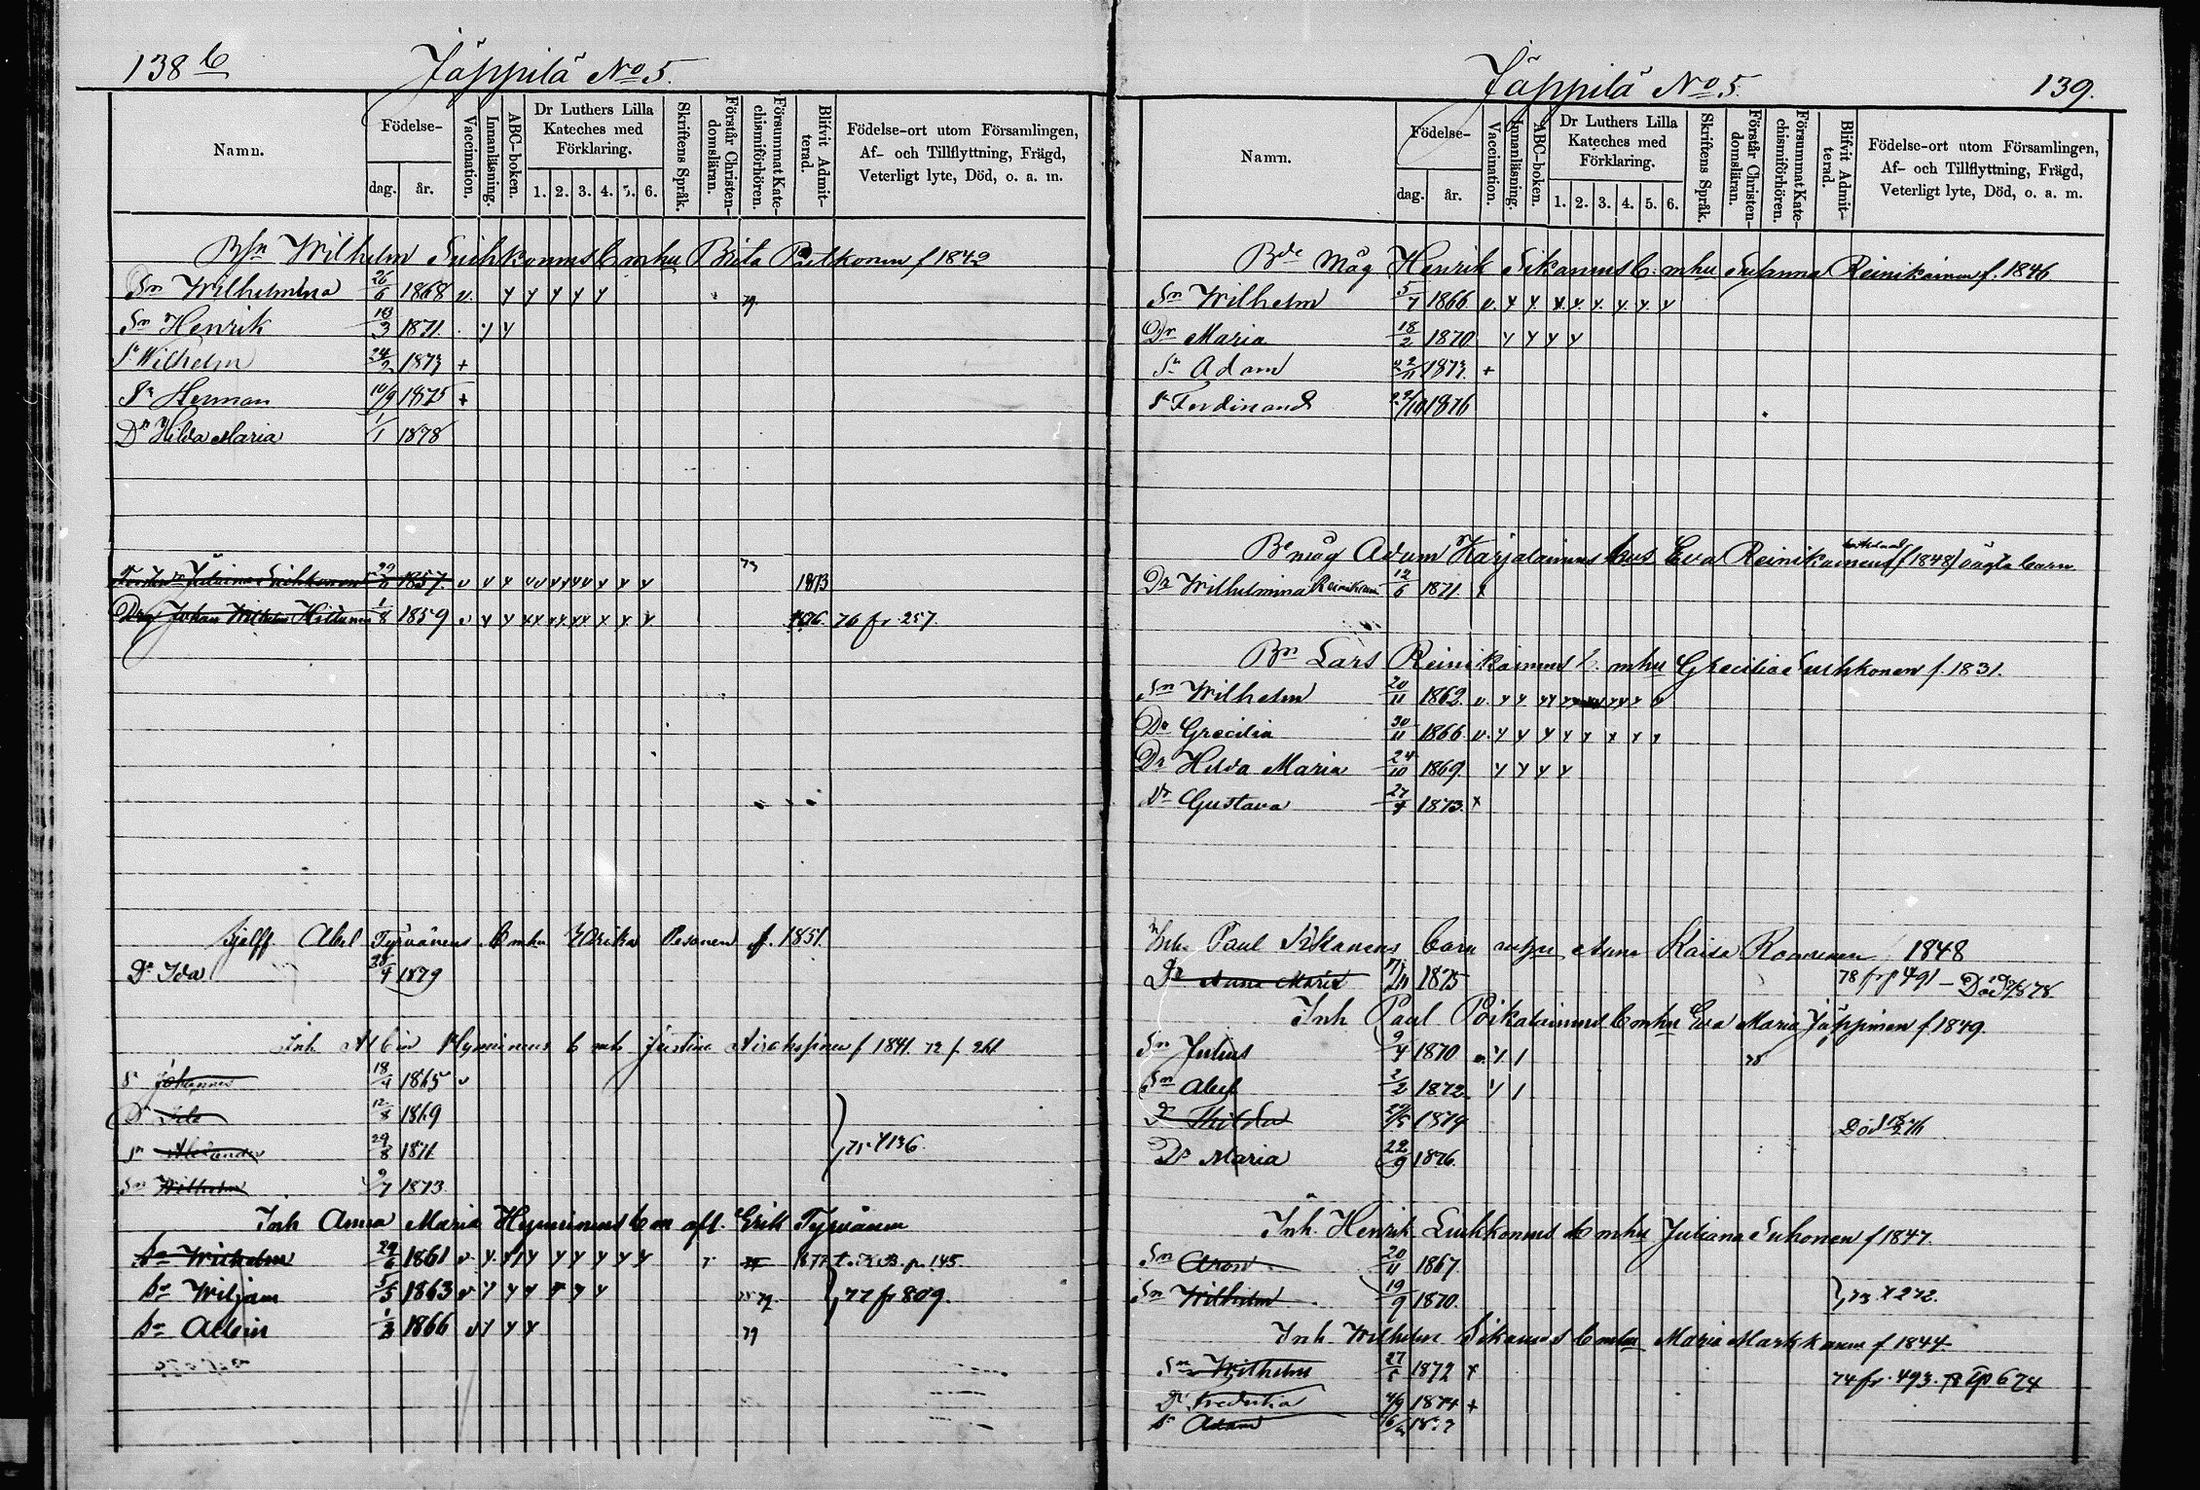 138 b
Jäppilä No 5.
Namn.
Födelse-
dag.
år.
Vaccination.
Innanläsning.
ABC-boken.
Dr Luthers Lilla
Kateches med
Förklaring.
1. 2. 3. 4. 5. 6.
Skriftens Språk.
Förstår Christen-
domsläran.
Försummat Kate-
chismiförhören.
Blifvit Admit-
terad.
Födelse-ort utom Församlingen,
Af- och Tillflyttning, Frägd,
Veterligt lyte, Död, o. a. m.
Wilhelm b mhu Brita f 1842
Wilhelmina 26/6 1868 v. y y y y y 79
Sn Henrik 18/3 1871 y y
Sn Wilhelm 24/2 1873 +
Sn Herman 10/9 1875 +
Dr Hilda Maria 1/1 1878
73
1857 v y y y y y y y y y 1873
Johan Wilhelm 1/8 1859 v y y y y y y y y y 1876 76 fr. 257
Abel Tyrvänens b mhu Ulrika Pesonen f. 1851.
Dr Ida 1879
Inh Albin Hyninens b mh Justina f 1841. 72 f. 261
Sn Johannes 18/4 1865 v
Dr Ida 12/8 1869
Sn Alexander 29/8 1871 75 t 136.
Sn Wilhelm 9/7 1873
Inh Anna Maria Hyninens b m afl. Erik Tyrvänen
Sn Wilhelm 29/6 1861 v. y y y y y y y y 1877 p. 145
Sn Wiljam 5/5 1863 v y y y y y y 79 77 fr 809.
Sn Albin 1/3 1866 v y y y 79
Jäppilä No 5.
139.
Namn.
Födelse-
dag.
år.
Vaccination.
Innanläsning.
ABC-boken.
Dr Luthers Lilla
Kateches med
Förklaring.
1. 2. 3. 4. 5. 6.
Skriftens Språk.
Förstår Christen-
domsläran.
Försummat Kate-
chismiförhören.
Blifvit Admit-
terad.
Födelse-ort utom Församlingen,
Af- och Tillflyttning, Frägd,
Veterligt lyte, Död, o. a. m.
Bde måg Henrik Sikanens b. mhu Susanna Reinikainen f. 1846
Sn Wilhelm 5/7 1866 v. y. y. y. y. y. y. y. y
Dr Maria 18/2 1870 y y y y
Sn Adam 22/11 1873. +
Sn Ferdinand 1876
måg Adam Karjalainens hus Eva Reinikainens (f 1848) oägta barn
Dr Wilhelmina Reinikain 12/6 1871 x
Bn Lars Reinikainens b. mhu Grecilia Suhkonen f. 1831.
Sn Wilhelm 20/11 1862 v. y y y y y y y y y
Dr Grecilia 30/11 1866 v. y y y y y y y y
Dr Hilda Maria 24/10 1869 y y y y
Dr Gustava 1873. x
Inh. Paul Sikanens barn Anna Kaisa 1848
Dr Anna Maria 1875 78 fr p 491 - Död 78
Inh Paul b mhu Eva Maria Jäppinen f 1849.
Sn Julius 9/4 1870 v. y 1 78
Sn Abel 2/2 1872 y 1
Dr Thilda 1874 Död 76
Dr Maria 22/9 1876.
Inh. Henrik b mhu Juliana Suhonen f 1847.
Sn Aron 20/11 1867.
Sn Wilhelm 19/9 1870. 73 t 272.
Inh Wilhelm Sikanens b mhu Maria Markkanen f 1844
Sn Wilhelm 1872 x 74 fr. 493. 78 tp 674
Dr Fredrika 4/9 1874 +
Sn Adam 1877